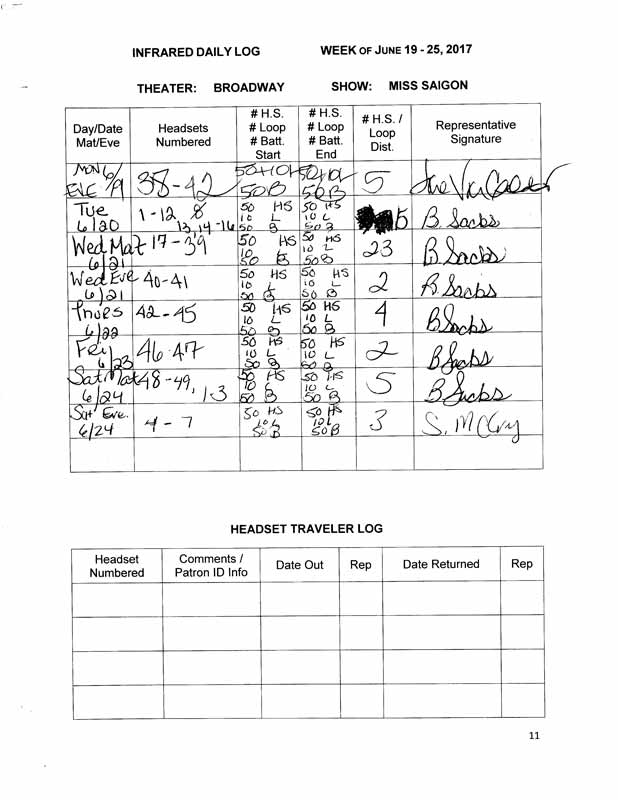 INFRARED DAILY LOG WEEK OF JUNE 19 - 25, 2017
THEATER: BROADWAY SHOW: MISS SAIGON
Day/Date Mat/Eve Headsets Numbered # H.S. # Loop # Batt. Start # H.S. # Loop # Batt. End # H.S. / Loop Dist. Representative Signature
MON 6/19 EVE 38-42 50+10L 50B 50+10L 50B 5
Tue 6/20 1-12 13,14-16 50 HS 10 L 50 B 50 HS 10 L 50 B 5 B. Sacks
Wed Mat 6/21 17-39 50 HS 10 L 50 B 50 HS 10 L 50 B 23 B. Sacks
Wed Eve 6/21 40-41 50 HS 10 L 50 B 50 HS 10 L 50 B 2 B Sacks
Thurs 6/22 42-45 50 HS 10 L 50 B 50 HS 10 L 50 B 4 B Sacks
Fri 6/23 46-47 50 HS 10 L 50 B 50 HS 10 L 50 B 2 B Sacks
Sat Mat 6/24 48-49, 1-3 50 HS 10 L 50 B 50 HS 10 L 50 B 5 B Sacks
Sat Eve. 6/24 4-7 50 HS 10L 50B 50 HS 10L 50B 3 S. McCry
HEADSET TRAVELER LOG
Headset Numbered Comments / Patron ID Info Date Out Rep Date Returned Rep
11